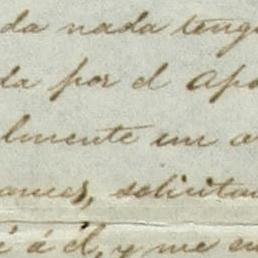 da nada teng
da por el Apo
lmente un a
ames, solicita
é á él, y me en